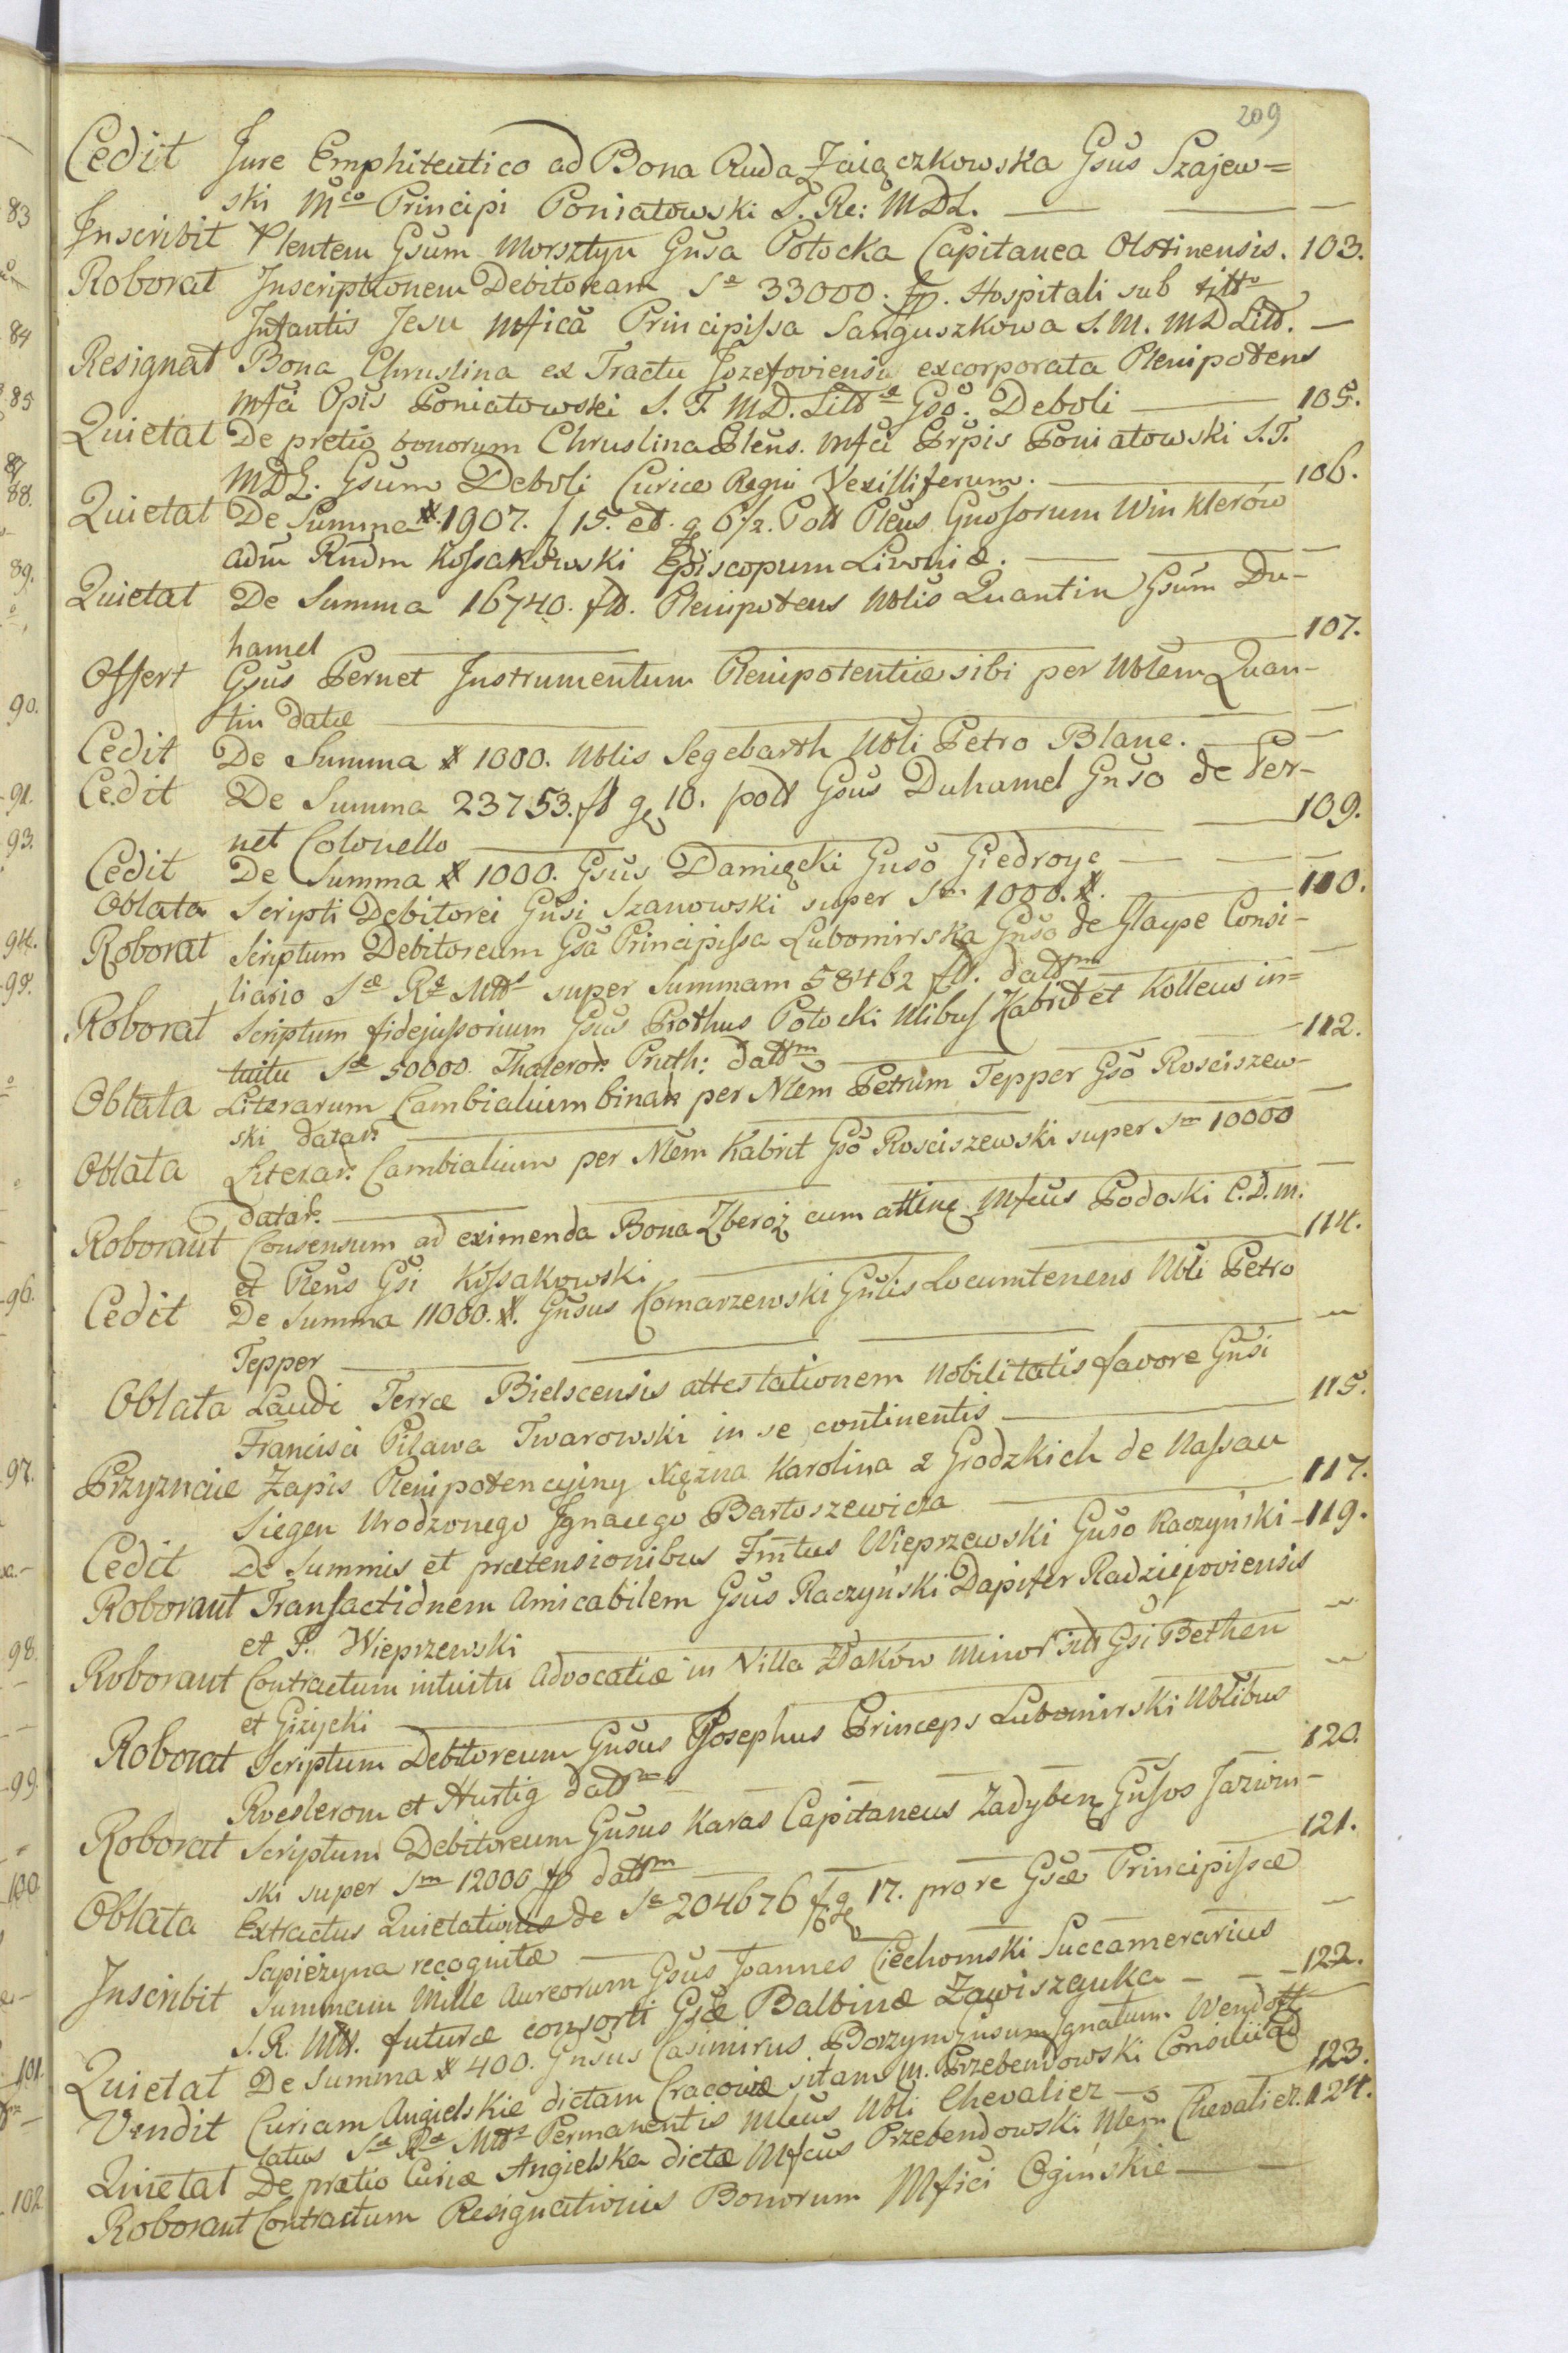 209
Cedit Jure Emphiteutico ad Bona Ruda Zaiączkowska Gsus Szajew=
ski Mco Principi Poniatowski S. Re: MDL. —
Inscribit Plentem Gsum Morsztyn Gnsa Potocka Capitanea Olstinensis. 103.
Roborat Inscriptionem Debitoream Sæ 33000. fp. Hospitali sub titto
Infantis Jesu Mfica Principissa Sanguszkowa S. M. MD Litt. —
Resignat Bona Chruslina ex Tractu Jozefoviensi excorporata Plenipotens
Mfci Ppis Poniatowski S. T. MD. Littæ Gso. Deboli — 105.
Quietat De pretio bonorum Chruslina Plens. Mfci Prpis Poniatowski S. T.
MDL. Gsum Deboli Curiæ Regni Vexilliferum. — 106.
Quietat De Summa # 1907. f 15. et. g 6 1/2. Pott Plens Gnosorum Winklerów
adm Rndm Kossakowski Episcopum Livoniæ. —
Quietat De Summa 16740. fld. Plenipotens Nblis Quantin Gsum Du-
hamel — 107.
Offert Gsus Pernet Instrumentum Plenipotentiæ sibi per Nblem Quan-
tin datæ —
Cedit De Summa # 1000. Nblis Segebarth Nbli Petro Blanc. —
Cedit De Summa 23753. fl g 10. pott Gsus Duhamel Gnso de Per-
net Colonello — 109.
Cedit De Summa # 1000. Gsus Damięcki Gnso Giedroyc —
Oblata Scripti Debitorei Gnsi Szanowski super Sm 1000. #. 110.
Roborat Scriptum Debitoreum Gsa Principissa Lubomirska Gnso de Glaype Consi-
liario Sæ Ræ Mttis super Summam 58462 fld. dattm —
Roborat Scriptum fidejussorium Gsus Prothus Potocki Nlibus Kabrit et Kolleus in=
tuitu Sæ 50000. Thaleror: Pruth: dattm — 112.
Oblata Literarum Cambialium binar per Nlem Petrum Tepper Gso Rosciszew-
ski datar: —
Oblata Literar: Cambialium per Nlem Kabrit Gso Rosciszewski super Sm 10000
datar: —
Roborant Consensum ad eximenda Bona Zberoż cum attine Mfcus Podoski C. D. M.
et Plens Gsi Kossakowski — 114.
Cedit De Summa 11000. #. Gnsus Komarzewski Gnlis Locumtenens Nbli Petro
Tepper —
Oblata Laudi Terræ Bielscensis attestationem Nobilitatis favore Gnsi
Francisci Pilawa Twarowski in se continentis — 115.
Przyznaie Zapis Plenipotencyiny Xiężna Karolina z Grodzkich de Nassau
Siegen Urodzonego Ignacego Bartoszewicza — 117.
Cedit De Summis et prætensionibus Fmtus Wieprzewski Gnso Raczyński — 119.
Roborant Transactionem Amicabilem Gsus Raczyński Dapifer Radziejoviensis
et P. Wieprzewski —
Roborant Contractum intuitu Advocatiæ in Villa Złaków Minor sitt Gsi Bethen
et Giżycki —
Roborat Scriptum Debitoreum Gnsus Josephus Princeps Lubomirski Nblibus
Roeslerom et Hurtig dattm — 120.
Roborat Scriptum Debitoreum Gnsus Karas Capitaneus Zadyben Gnsos Jazwin-
ski super Sm 12000 fp dattm — 121.
Oblata Extractus Quietationis de Sæ 204676 f g 17. pro re Gsæ Principissæ
Sapieżyna recognitæ —
Inscribit Summam Mille Aureorum Gsus Joannes Ciechomski Succamerarius
S. R. Mtt. futuræ consorti Gsæ Balbinæ Zawiszanka — 122.
Quietat De Summa # 400. Gnsus Casimirus Borzym Gnsum Ignatum Wendoff
Vendit Curiam Angielskie dictam Cracoviæ sitam M. Przebendowski Consilii ad
latus Sæ Ræ Mttis Permanentis Mlcus Nbli Chevalier — 123.
Quietat De prætio Curiæ Angielska dictæ Mfcus Przebendowski Nlem Chevalier. 124.
Roborant Contractum Resignationis Bonorum Mfici Oginskie —
83
84
85
87
88.
89.
90.
91.
93.
94.
95.
96.
97.
98.
99.
100
101.
102